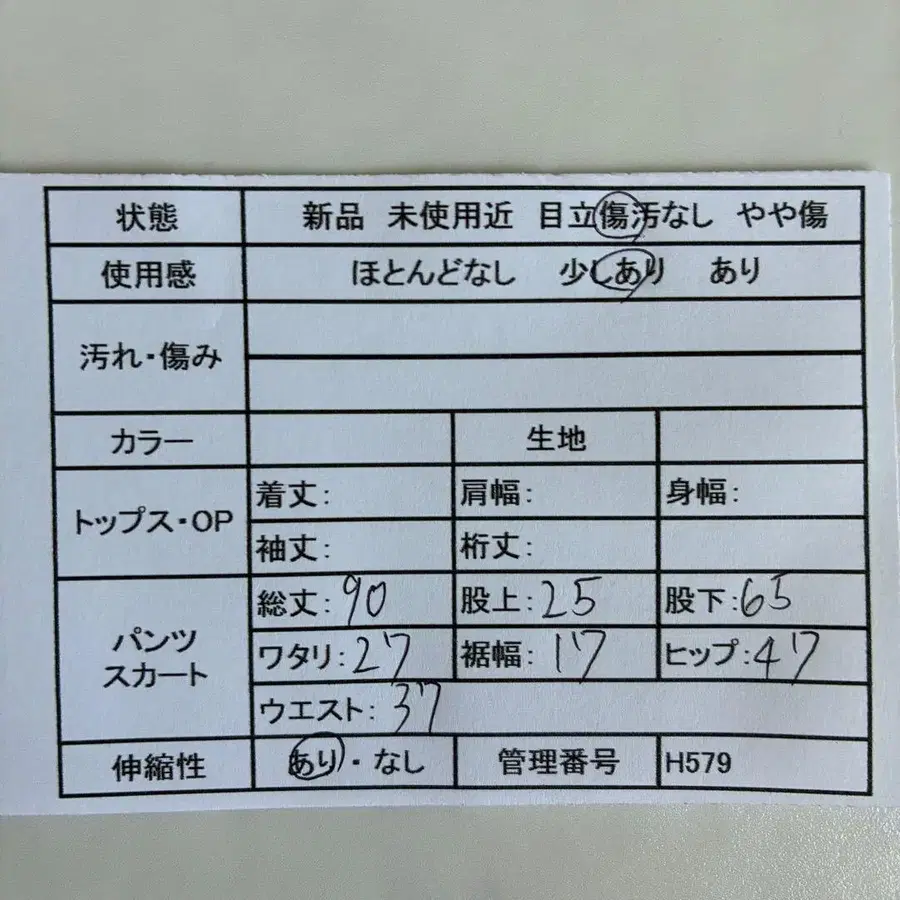 状態 新品 未使用近 目立傷汚なし やや傷
使用感 ほとんどなし 少しあり あり
汚れ・傷み
カラー 生地
トップス・OP
着丈: 肩幅: 身幅:
袖丈: 裄丈:
パンツ
スカート
総丈:90 股上:25 股下:65
ワタリ:27 裾幅:17 ヒップ:47
ウエスト:37
伸縮性 あり・なし 管理番号 H579